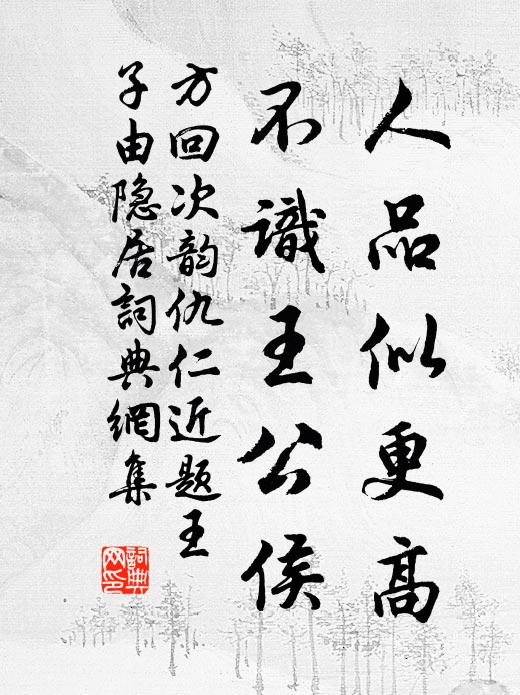 人品似更高
不識王公侯
方回次韵仇仁近题王
子由隐居詞典網集
詞典
网印